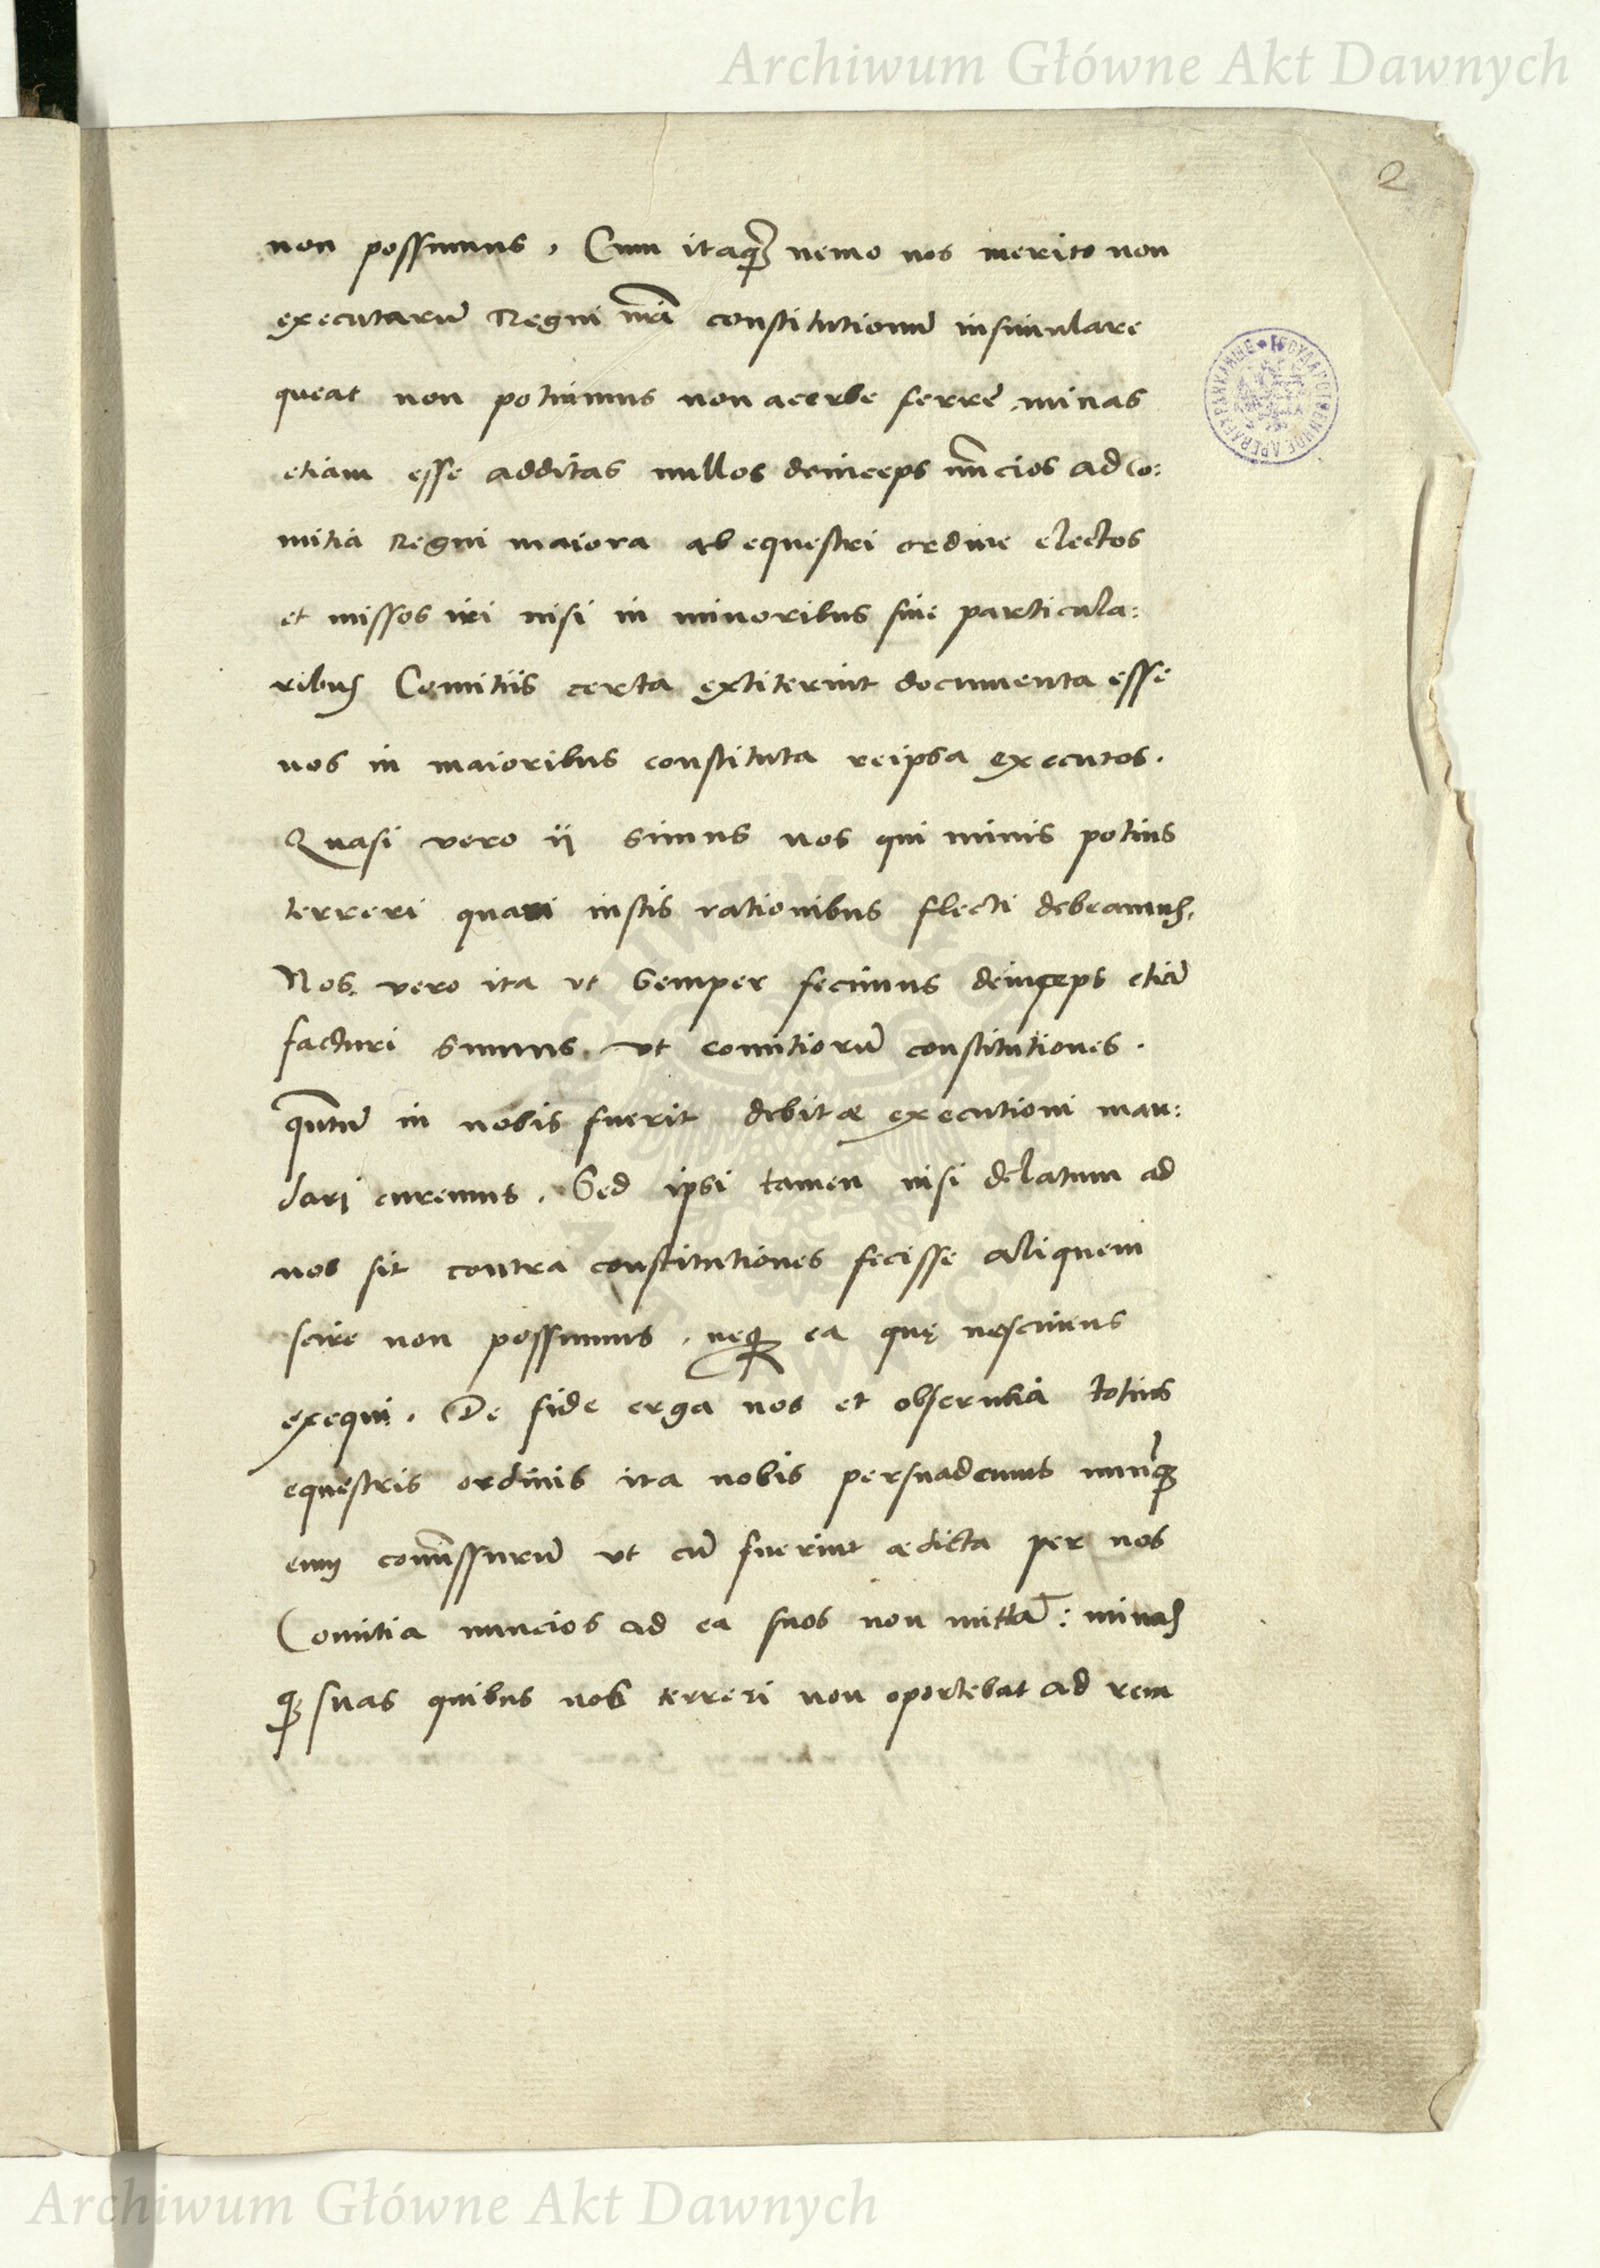 Archiwum Główne Akt Dawnych
2
non possumus. Cum itaq₃ nemo nos merito non
executarū Regni nr̄i constitutionū insimulare
queat non potuimus non acerbe ferre minas
etiam esse additas nullos deinceps nūcios ad Co:
mitia Regni maiora ab equestri ordine electos
et missos iri nisi in minoribus siue particula:
ribus Comitiis certa extiterint documenta esse
nos in maioribus constituta reipsa executos.
Quasi vero ij simus nos qui minis potius
terreri quam iustis rationibus flecti debeamus.
Nos vero ita ut semper fecimus deinceps etiā
facturi sumus ut comitiorū constitutiones.
quātū in nobis fuerit debitæ executioni man:
dari curemus. Sed ipsi tamen nisi delatum ad
nos sit contra constitutiones fecisse aliquem
scire non possumus. neq₃ ea quę nescimus
exequi. De fide erga nos et obseruātia totius
equestris ordinis ita nobis persuademus nunq̄
eum com̄issurū ut cū fuerint ædicta per nos
Comitia nuncios ad ea suos non mittat: minas
q₃ suas quibus nos terreri non oportebat ad rem
Archiwum Główne Akt Dawnych